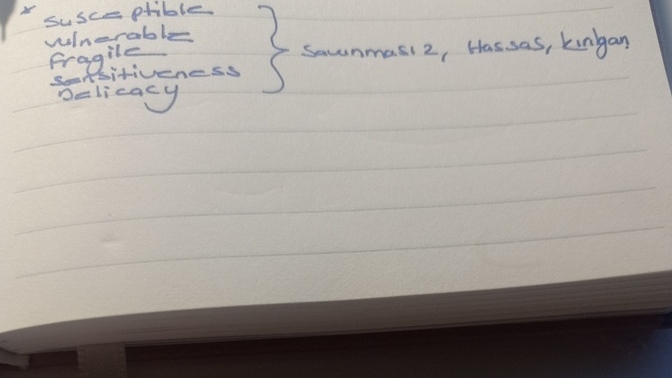 * susceptible
vulnerable
fragile
sensitiveness
Delicacy
savunmasız, Hassas, kırılgan